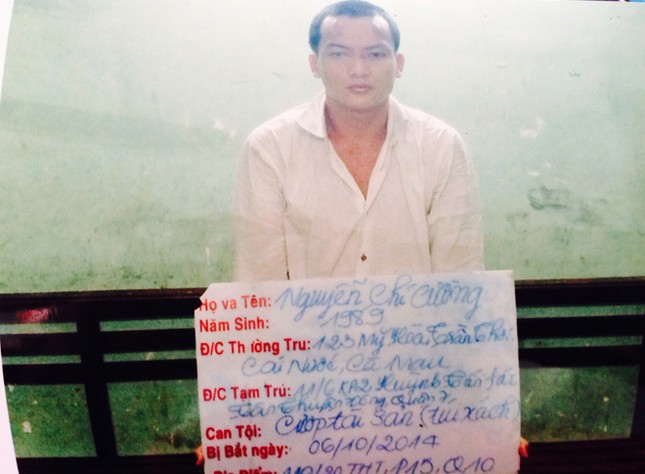 Họ va Tên: Nguyễn Chí Cường
Năm Sinh: 1989
Đ/C Th ờng Tru: 123 Mỹ Hòa, Trần Thới
Cái Nước, Cà Mau
Đ/C Tạm Trú: 11/6 KP2 Huỳnh Tấn Phát
Tân Thuận Đông Quận 7
Can Tội: Cướp tài sản (túi xách)
Bị Bắt ngày: 06/10/2014
110/30 THT, P15, Q10